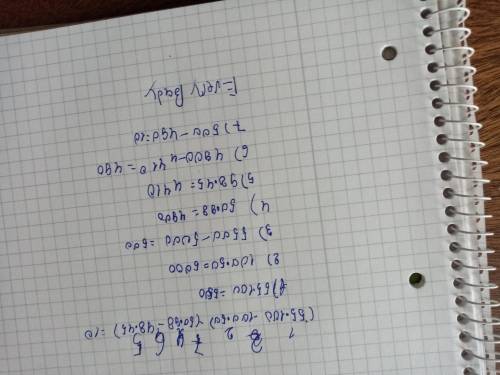 1 3 2 7 4 6 5
(55·100 -100·50) -(50·98 -98·45) =10
1) 55·100 =
2) 100·50=5000
3) 5500-5000 =500
4) 50·98 = 4900
5) 98·45= 4410
6) 4900-4410 = 490
7) 500 - 490=10
Every Bady